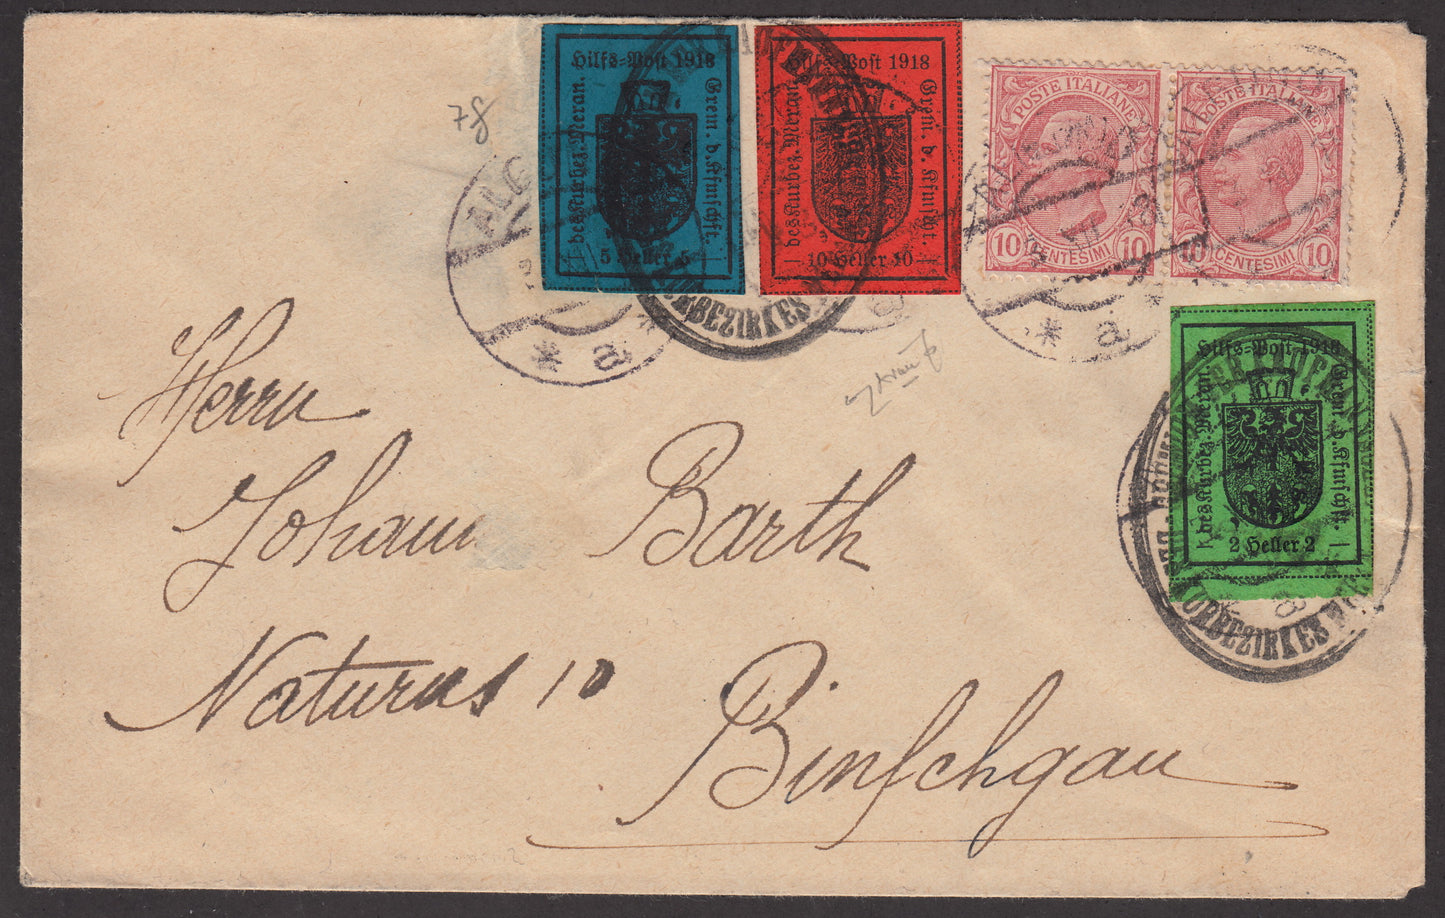 Hilfs-Post 1918
des Kurbez. Meran.
Grem. d. Kfmschft.
5 Heller 5
Hilfs-Post 1918
des Kurbez. Meran.
Grem. d. Kfmschft.
10 Heller 10
POSTE ITALIANE
10 CENTESIMI 10
POSTE ITALIANE
10 CENTESIMI 10
78
ALG
* a
KURBEZIRKES
* a
Hilfs-Post 1918
des Kurbez. Meran.
Grem. d. Kfmschft.
2 Heller 2
KURBEZIRKES
Herrn
Johann Barth
Naturns 10
Vinschgau